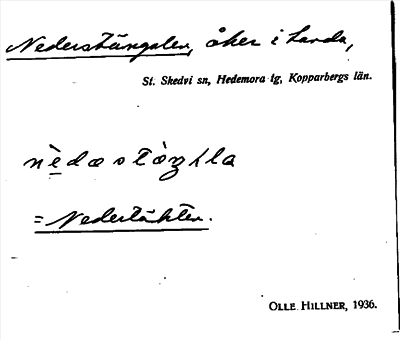 Nederstängslen, åker i Landa,
St. Skedvi sn, Hedemora tg, Kopparbergs län.
= Nedertäkten.
OLLE HILLNER, 1936.